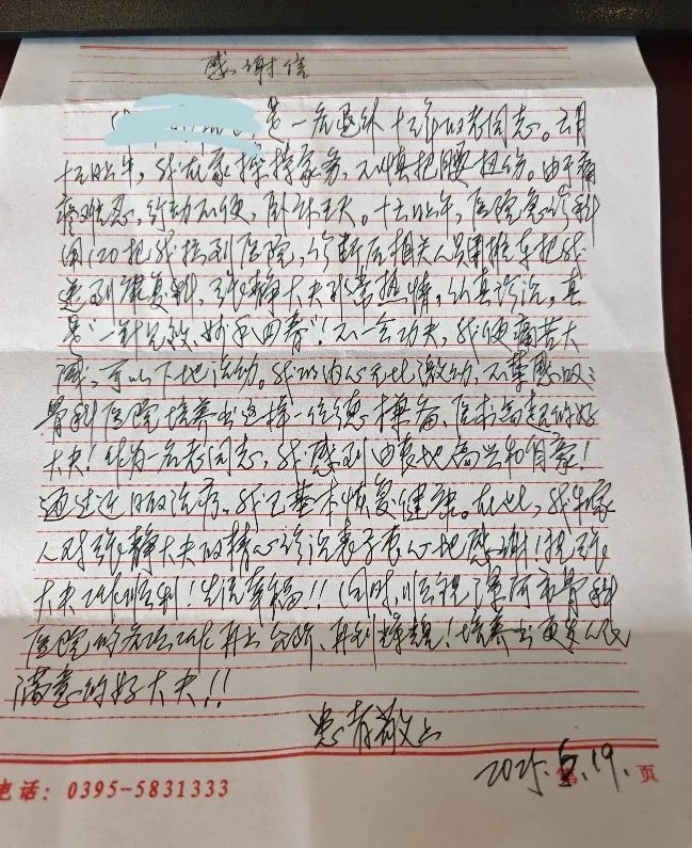 感谢信
是一名退休十五年的老同志。五月
十五日上午，我在家操持家务，不慎把腰扭伤。由于疼
痛难忍，行动不便，卧床五天。十六日上午，医院急诊科
用120把我接到医院，诊断后相关人员用推车把我
送到康复科，张静大夫非常热情，认真诊治，真
是“一针见效，妙手回春”！不一会功夫，我便痛苦大
减，可以下地活动。我的内心无比激动，不禁感叹：
骨科医院培养出这样一位德操高、医术高超的好
大夫！作为一名老同志，我感到由衷地高兴和自豪！
通过近日的治疗，我已基本恢复健康。在此，我和家
人对张静大夫的精心诊治表示衷心地感谢！祝张
大夫工作顺利！生活幸福！！同时，也祝漯河市骨科
医院的各项工作再上台阶、再创辉煌！培养出更多人民
满意的好大夫！！
患者敬上
2025.5.19.
页
电话：0395-5831333